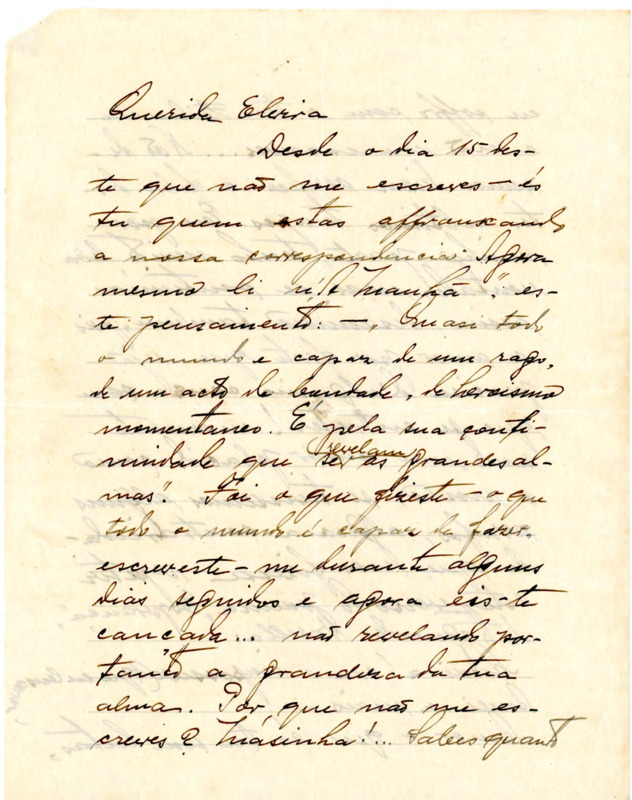 Querida Elerira
Desde o dia 15 des-
te que não me escreves – és
tu quem estas affrouxando
a nossa correspondencia. Agora
mesmo li n'"A Manhã", es-
te pensamento: – "Quasi todo
o mundo e capaz de um rasgo,
de um acto de bondade, de heroismo
momentaneo. É pela sua conti-
nuidade que se revelam as grandes al-
mas". Foi o que fizeste – o que
todo o mundo é capaz de fazer,
escreveste-me durante alguns
dias seguidos e agora eis-te
cancada... não revelando por-
tanto a grandeza da tua
alma. Por que não me es-
creves? Másinha!... Sabes quanto